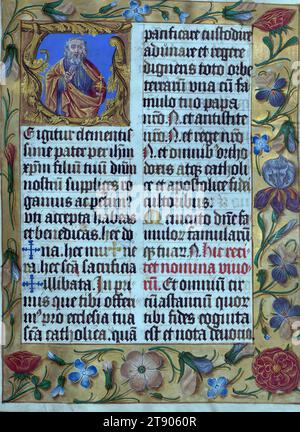 E igitur clementis
sime pater per ihm̄
xp̄m filiū tuū dn̄m
nostrū supplices ro
gamus ac petim⁹
vti accepta habeas
et benedicas, hec do
na hec mu nera
hec scā sacrificia
illibata. In pri
mis que tibi offeri
mus pro ecclesia tua
scā catholica, quā
pacificare custodire
adunare et regere
digneris toto orbe
terrarū vna cū fa
mulo tuo papa
nr̄o N. et antistite
nr̄o N. et rege nr̄o N.
et omnib⁹ ortho
doxis atq̄ catholi
ce et apostolice fidei
cultoribus.
Memento dn̄e fa
mulor famularum
q̄ tuar N. Hic reci
tet nomina viuo
rū. Et omnium cir
cūastanciū quor
tibi fides cognita
est et nota deuotio
alamy
Image ID: 2T9060R
www.alamy.com